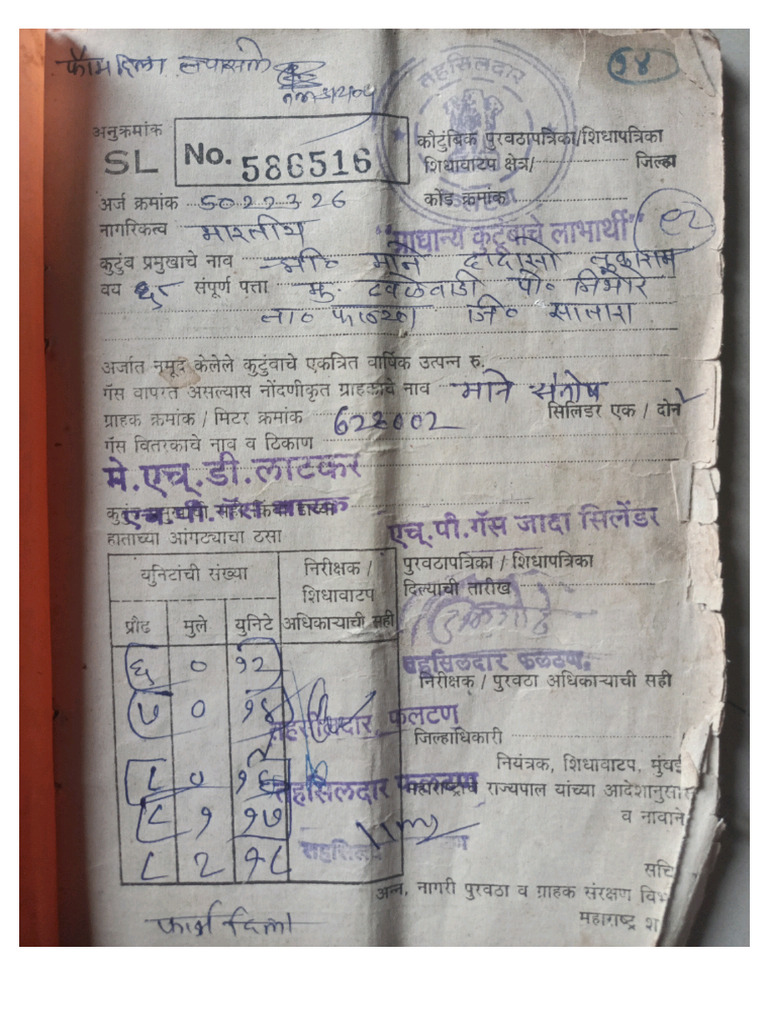 फॉर्म दिला तपासले
५४
तहसिलदार
फलटण
अनुक्रमांक
SL No. 586516
कौटुंबिक पुरवठापत्रिका/शिधापत्रिका
शिधावाटप क्षेत्र/ जिल्हा
अर्ज क्रमांक 5022326
कोड क्रमांक
नागरिकत्व भारतीय
"प्राधान्य कुटुंबाचे लाभार्थी" 02
कुटुंब प्रमुखाचे नाव श्री. माने दादासो तुकाराम
वय ६८ संपूर्ण पत्ता मु. टकलेवाडी पो. निंभोरे
ता० फलटण जि० सातारा
अर्जात नमूद केलेले कुटुंबाचे एकत्रित वार्षिक उत्पन्न रु.
गॅस वापरत असल्यास नोंदणीकृत ग्राहकाचे नाव माने संतोष
ग्राहक क्रमांक / मिटर क्रमांक 622002 सिलिंडर एक / दोन
गॅस वितरकाचे नाव व ठिकाण
मे.एच.डी.लाटकर
एच.पी.गॅस धारक
एच.पी.गॅस जादा सिलेंडर
हाताच्या आंगठ्याचा ठसा
युनिटांची संख्या निरीक्षक / शिधावाटप अधिकाऱ्याची सही
प्रौढ मुले युनिटे
६ 0 १२
७ 0 १४
८ 0 १६
८ १ १७
८ २ १८
तहसिलदार, फलटण
तहसिलदार फलटण
पुरवठापत्रिका / शिधापत्रिका
दिल्याची तारीख
तहसिलदार फलटण.
निरीक्षक / पुरवठा अधिकाऱ्याची सही
जिल्हाधिकारी
नियंत्रक, शिधावाटप, मुंबई
महाराष्ट्राचे राज्यपाल यांच्या आदेशानुसार
व नावाने
सचि
अन्न, नागरी पुरवठा व ग्राहक संरक्षण विभ
महाराष्ट्र श
फॉर्म दिला